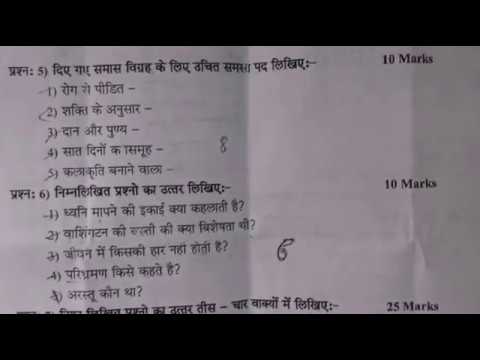 प्रश्न: 5) दिए गए समास विग्रह के लिए उचित समस्त पद लिखिए:- 10 Marks
1) रोग से पीडित –
2) शक्ति के अनुसार –
3) दान और पुण्य –
4) सात दिनों का समूह – 8
5) कलाकृति बनाने वाला –
प्रश्न: 6) निम्नलिखित प्रश्नो का उत्तर लिखिए:- 10 Marks
1) ध्वनि मापने की इकाई क्या कहलाती है?
2) वाशिंगटन की की क्या विशेषता थी?
3) जीवन में किसकी हार नहीं होती है? 6
4) परिभ्रमण किसे कहते है?
5) अरस्तू कौन था?
लिखित प्रश्नो का उत्तर तीस – चार वाक्यों में लिखिए:- 25 Marks